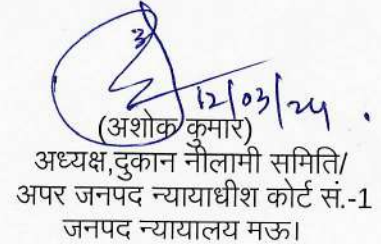 12/03/24
(अशोक कुमार)
अध्यक्ष,दुकान नीलामी समिति/
अपर जनपद न्यायाधीश कोर्ट सं.-1
जनपद न्यायालय मऊ।